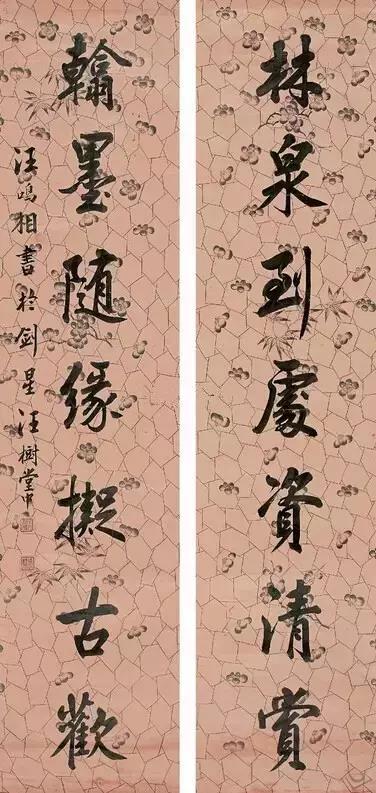 林泉到處資清賞
翰墨随緣擬古歡
汪鳴相書於劍星汪樹堂中